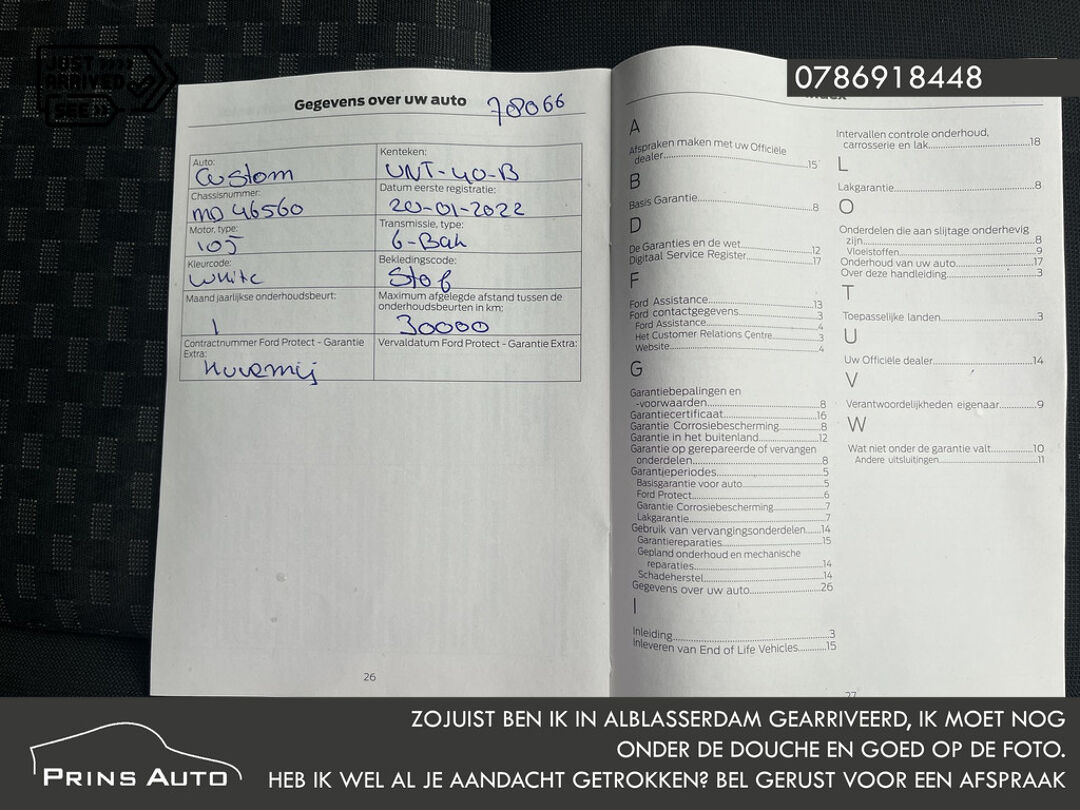 JUST
ARRIVED
SEE
0786918448
Gegevens over uw auto 708066
Auto:
Custom
Kenteken:
VNT-40-B
Chassisnummer:
MD 46560
Datum eerste registratie:
20-01-2022
Motor, type:
105
Transmissie, type:
6-Bak
Kleurcode:
White
Bekledingscode:
Stof
Maand jaarlijkse onderhoudsbeurt:
1
Maximum afgelegde afstand tussen de
onderhoudsbeurten in km:
30000
Contractnummer Ford Protect - Garantie
Extra:
Vervaldatum Ford Protect - Garantie Extra:
26
Index
A
Afspraken maken met uw Officiële
dealer...15
B
Basis Garantie...8
D
De Garanties en de wet...12
Digitaal Service Register...17
F
Ford Assistance...13
Ford contactgegevens...3
Ford Assistance...4
Het Customer Relations Centre...3
Website...4
G
Garantiebepalingen en
-voorwaarden...8
Garantiecertificaat...16
Garantie Corrosiebescherming...8
Garantie in het buitenland...12
Garantie op gerepareerde of vervangen
onderdelen...8
Garantieperiodes...5
Basisgarantie voor auto...5
Ford Protect...6
Garantie Corrosiebescherming...7
Lakgarantie...7
Gebruik van vervangingsonderdelen...14
Garantiereparaties...15
Gepland onderhoud en mechanische
reparaties...14
Schadeherstel...14
Gegevens over uw auto...26
I
Inleiding...3
Inleveren van End of Life Vehicles...15
Intervallen controle onderhoud,
carrosserie en lak...18
L
Lakgarantie...8
O
Onderdelen die aan slijtage onderhevig
zijn...8
Vloeistoffen...9
Onderhoud van uw auto...17
Over deze handleiding...3
T
Toepasselijke landen...3
U
Uw Officiële dealer...14
V
Verantwoordelijkheden eigenaar...9
W
Wat niet onder de garantie valt...10
Andere uitsluitingen...11
27
PRINS AUTO
ZOJUIST BEN IK IN ALBLASSERDAM GEARRIVEERD, IK MOET NOG
ONDER DE DOUCHE EN GOED OP DE FOTO.
HEB IK WEL AL JE AANDACHT GETROKKEN? BEL GERUST VOOR EEN AFSPRAAK